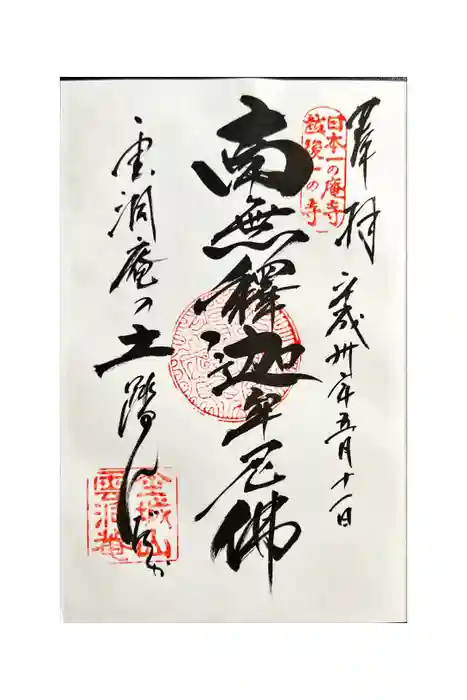 奉拝
平成卅年五月十一日
日本一の庵寺
越後一の寺
南無釋迦牟尼佛
雲洞庵の土踏んだか
金城山
雲洞菴